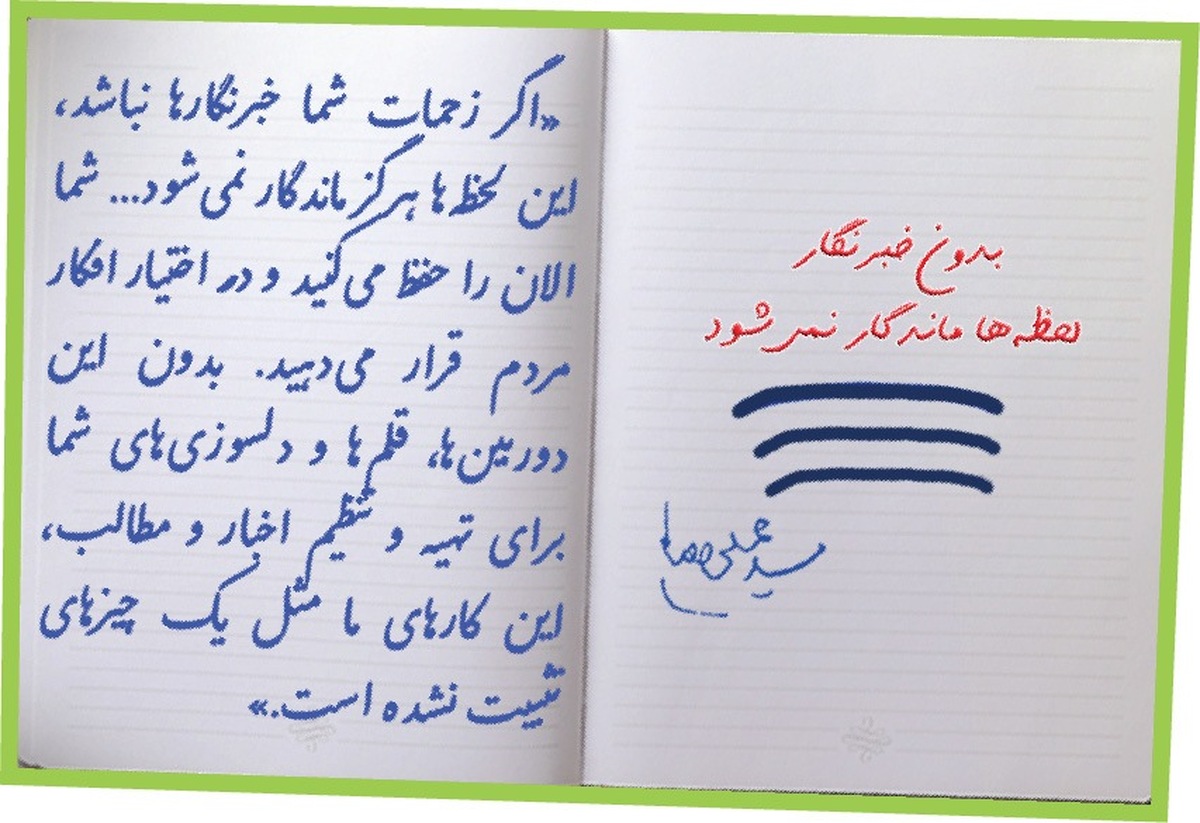 بدون خبرنگار
لحظه‌ها ماندگار نمی‌شود
سید علیرضا
«اگر زحمات شما خبرنگارها نباشد،
این لحظه‌ها هرگز ماندگار نمی‌شود... شما
الان را حفظ می‌کنید و در اختیار افکار
مردم قرار می‌دهید. بدون این
دوربین‌ها، قلم‌ها و دلسوزی‌های شما
برای تهیه و تنظیم اخبار و مطالب،
این کارهای ما مثل یک چیزهای
تثبیت نشده است.»